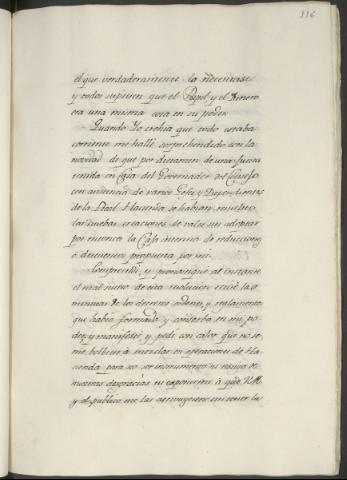 116
el que verdaderamente la necesitase
y todos supiesen que el Papel y el Dinero
era una misma cosa en su poder.
Quando Yo crehia que todo estaba
corriente me hallé sorprehendido con la
novedad de que por dictamen de una Junta
tenida en Casa del Governador del Consejo
con asistencia de varios Gefes y Dependientes
de la Real Hacienda se habian resuelto
nuebas creaciones de vales sin adoptar
por entonces la Caja interina de reducciones
ó descuentos propuesta por mi.
Comprendí y pronostiqué al instante
el mal exito de esta resolucion recogí las
minutas de los decretos ordenes y reglamentos
que habia formado y constaba en mi po-
der, y manifesté y pedí con calor que no se
me bolbiese á mezclar en operaciones de Ha-
cienda para no ser instrumento ni testigo de
nuestras desgracias ni exponerme á que V.M.
y el publico me las atribuyesen sin tener la